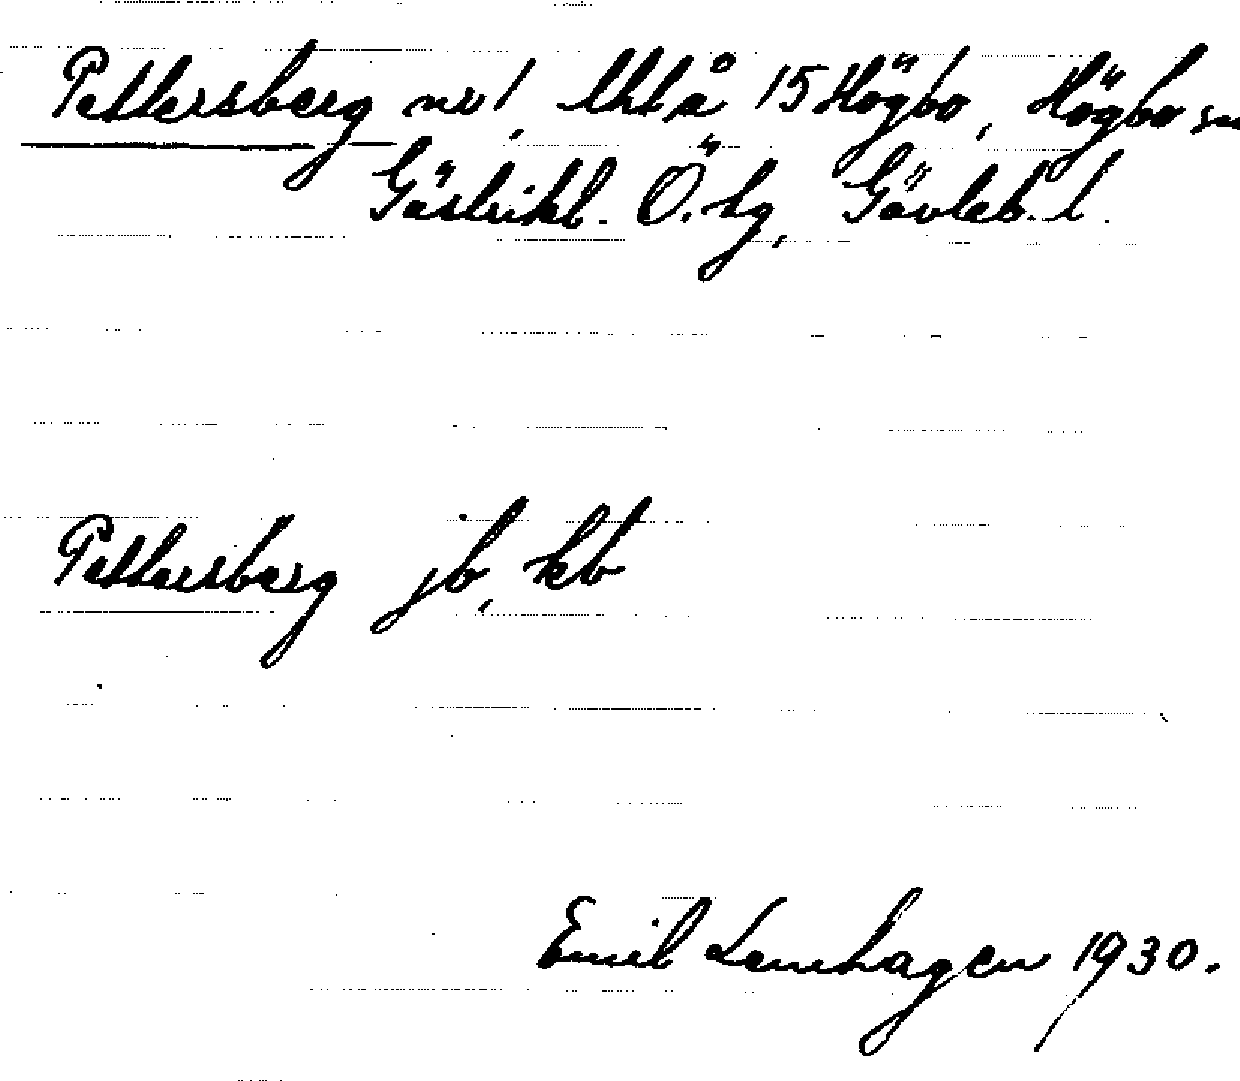 Pettersberg nr 1, utl å 15 Högbo, Högbo sn
Gästrikl. Ö. hg, Gävleb. l.
Pettersberg jb, kb
Emil Lenhagen 1930.